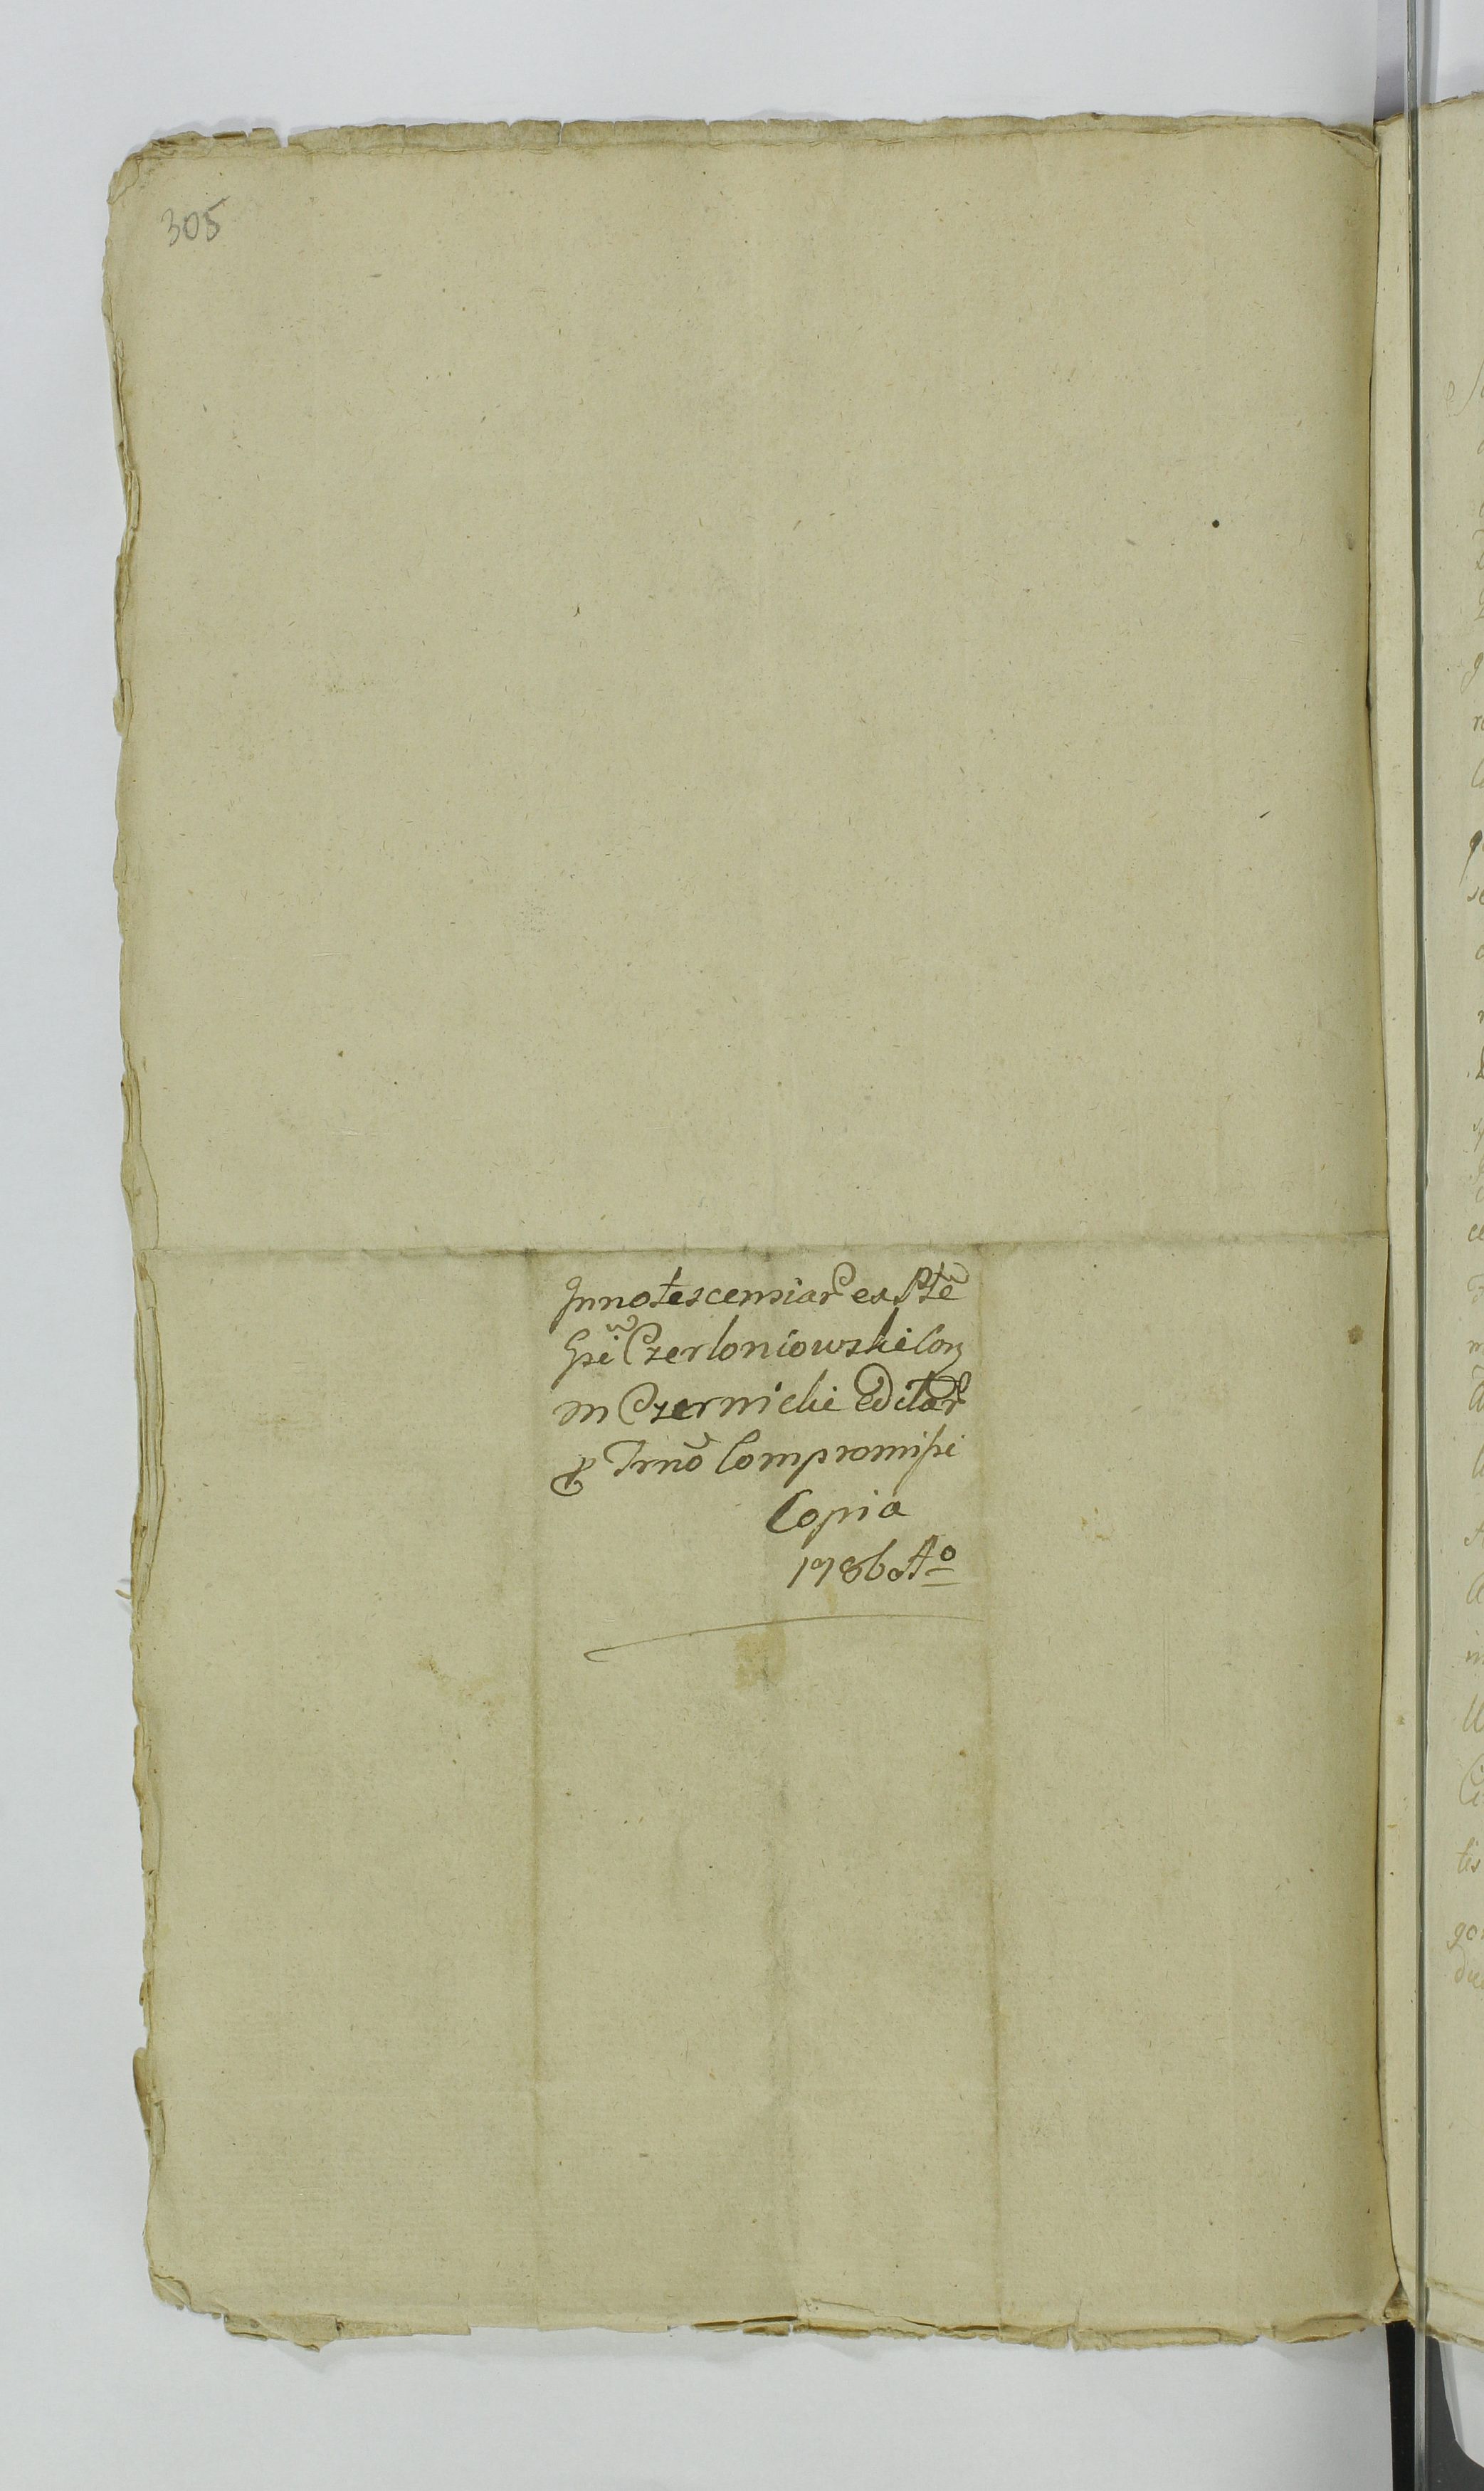 305
Innotescensiar ex Pte
Gsi Czerloniowski Con
M Czernicki Editar
P Trno Compromissi
Copia
1786 Ao